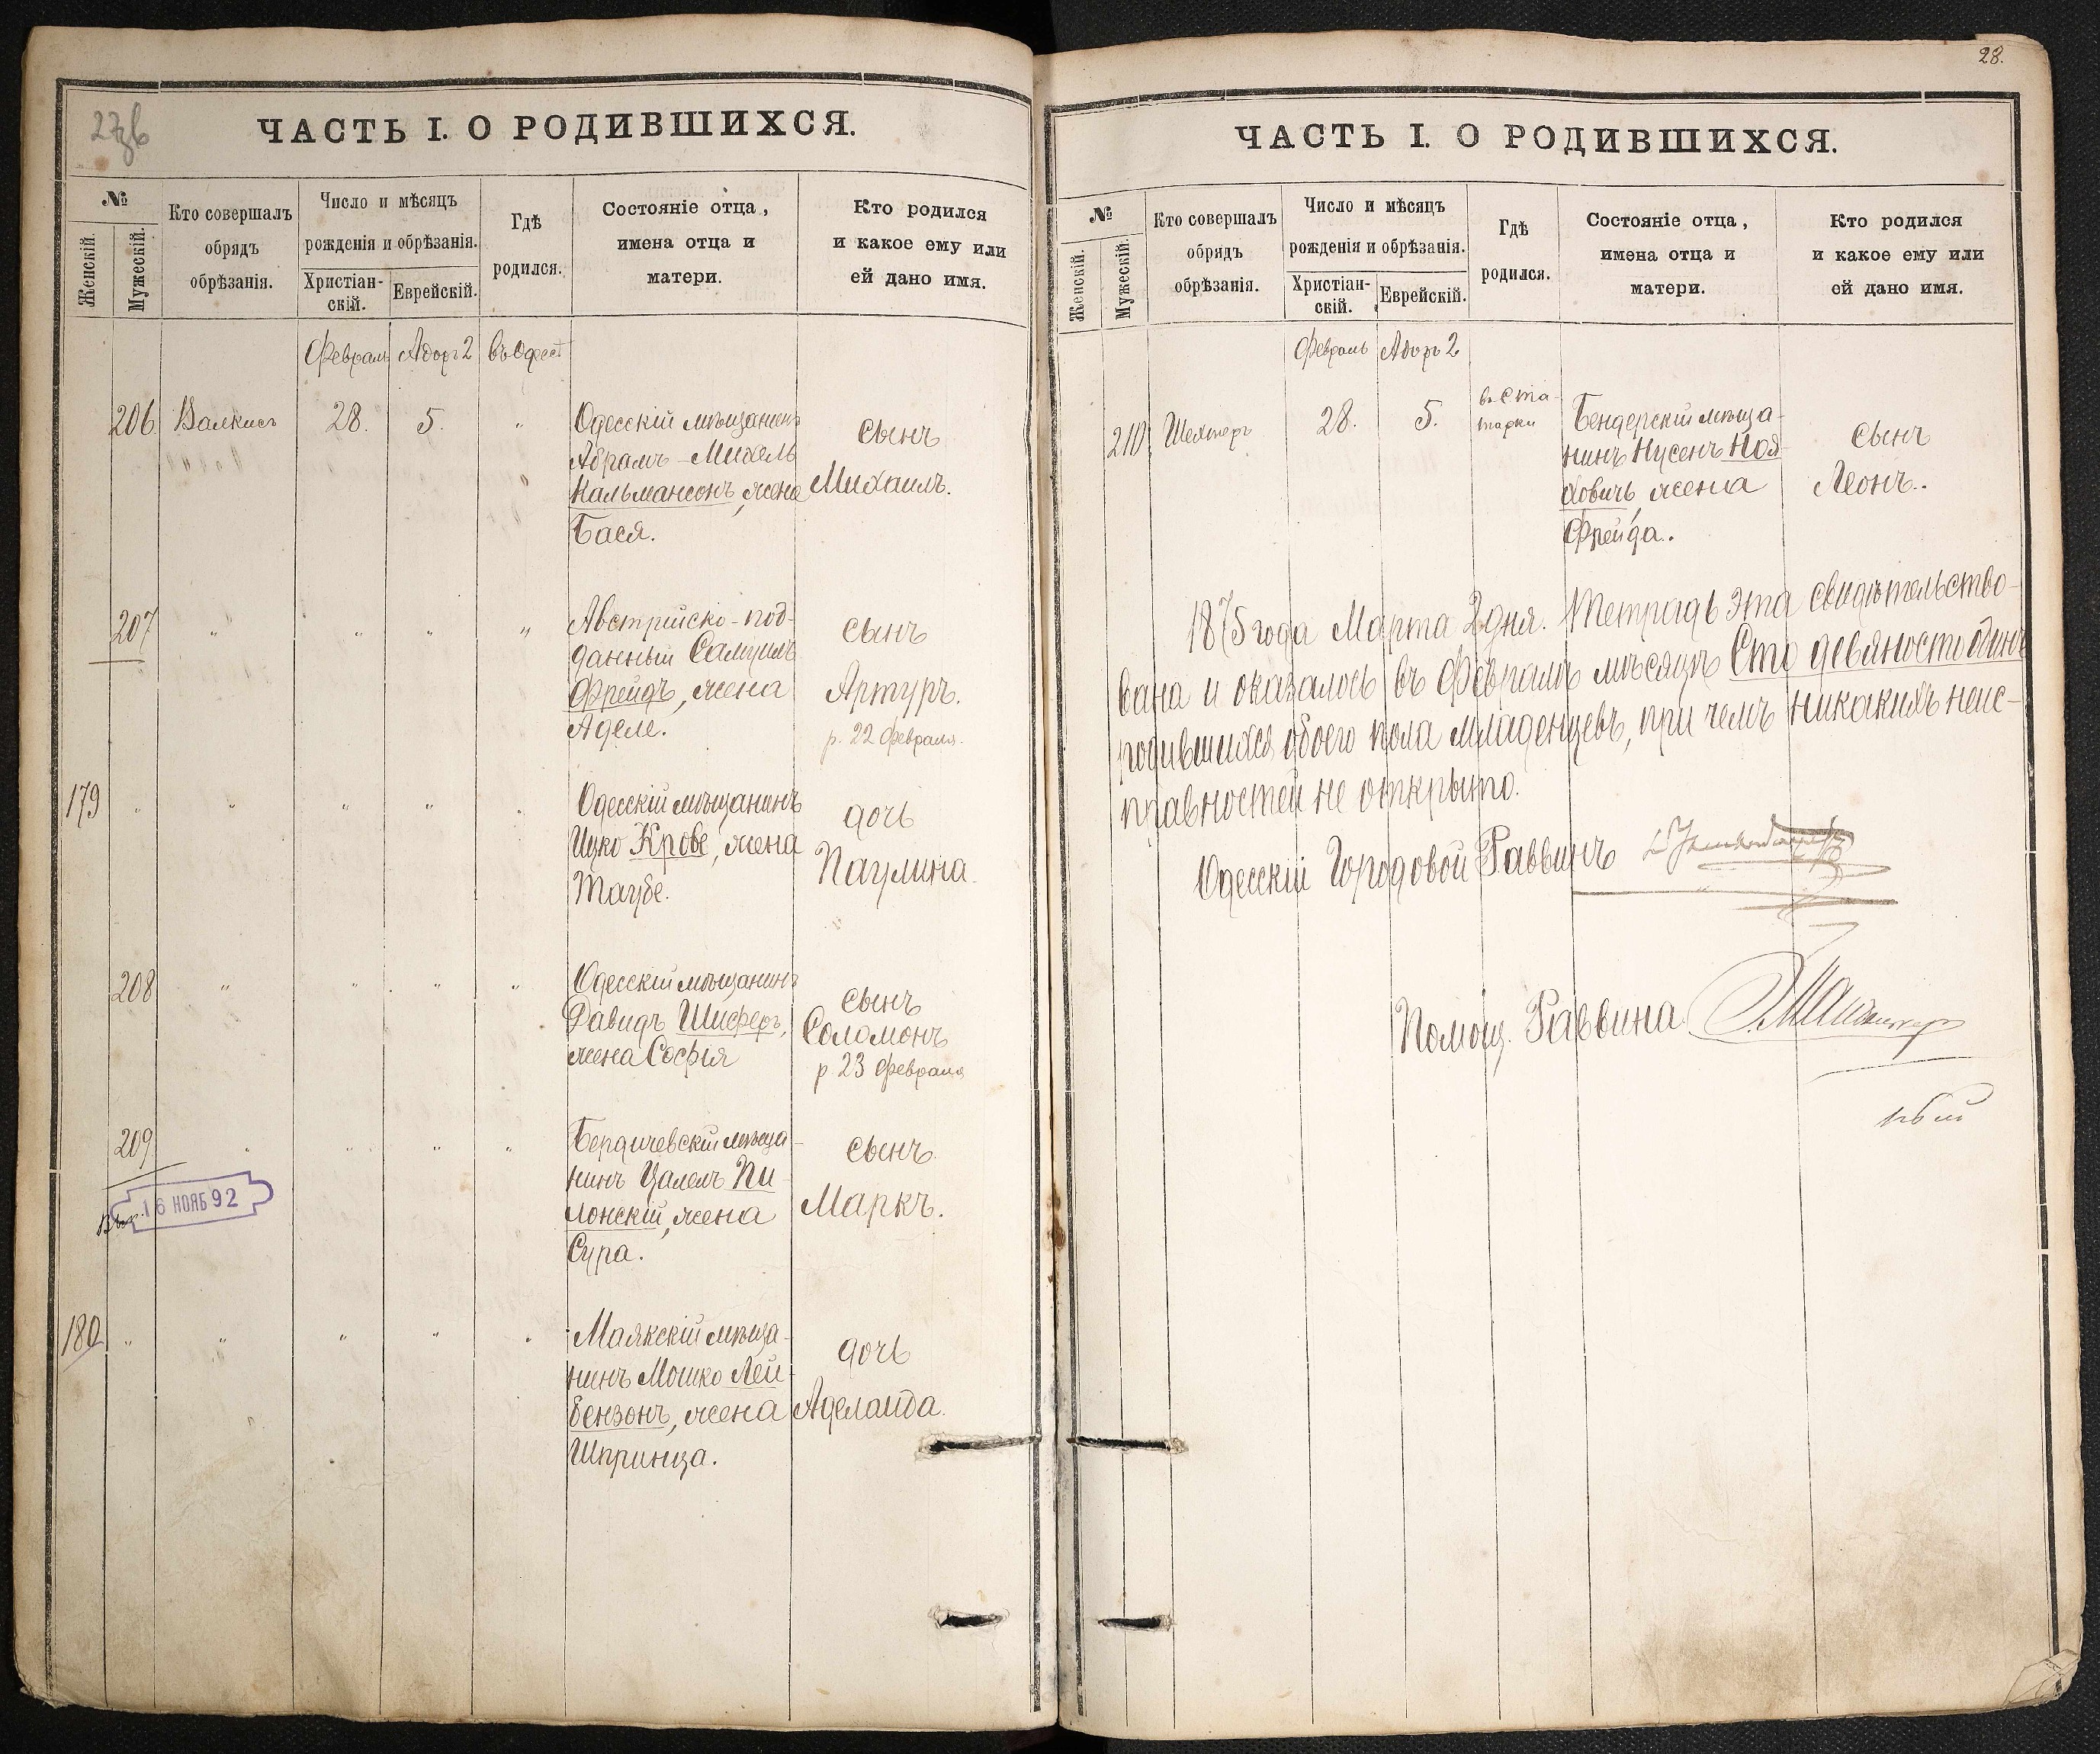 27об
ЧАСТЬ I. О РОДИВШИХСЯ.
№
Женскій.
Мужескій.
Кто совершалъ
обрядъ
обрѣзанія.
Число и мѣсяцъ
рожденія и обрѣзанія.
Христіан-
скій.
Еврейскій.
Гдѣ
родился.
Состояніе отца,
имена отца и
матери.
Кто родился
и какое ему или
ей дано имя.
Февраль Адоръ 2 въ Одессѣ
206 Валкисъ 28. 5. „
Одесскій мѣщанинъ
Абрамъ-Михель
Кальмансонъ, жена
Бася.
сынъ
Михаилъ.
207 „ „ „ „
Австрійско-под-
данный Самуилъ
Фрейдъ, жена
Аделе.
сынъ
Артуръ.
р. 22 Февраля.
179 „ „ „ „ „
Одесскій мѣщанинъ
Ицко Крове, жена
Таубе.
дочь
Паулина.
208 „ „ „ „
Одесскій мѣщанинъ
Давидъ Шиферъ,
жена Софія
сынъ
Соломонъ
р. 23 Февраля
209 „ „ „ „
16 НОЯБ 92
Бердичевскій мѣща-
нинъ Цалель Пи-
лонскій, жена
Сура.
сынъ.
Маркъ.
180 „ „ „ „ „
Маякскій мѣща-
нинъ Мошко Лей-
бензонъ, жена
Шпринца.
дочь
Аделаида.
28.
ЧАСТЬ I. О РОДИВШИХСЯ.
№
Женскій.
Мужескій.
Кто совершалъ
обрядъ
обрѣзанія.
Число и мѣсяцъ
рожденія и обрѣзанія.
Христіан-
скій.
Еврейскій.
Гдѣ
родился.
Состояніе отца,
имена отца и
матери.
Кто родился
и какое ему или
ей дано имя.
Февраль Адоръ 2
210 Шехтеръ 28. 5.
въ Ста-
тарки
Бендерскій мѣща-
нинъ Нусенъ Ноя-
ховичъ, жена
Фрейда.
сынъ
Леонъ.
1875 года Марта 2 дня. Тетрадь эта свидѣтельство-
вана и оказалось въ Февралѣ мѣсяцѣ Сто девяносто одинъ
родившихся обоего пола младенцевъ, при чемъ никакихъ неис-
правностей не открыто.
Одесскій Городовой Раввинъ
Помощ. Раввина